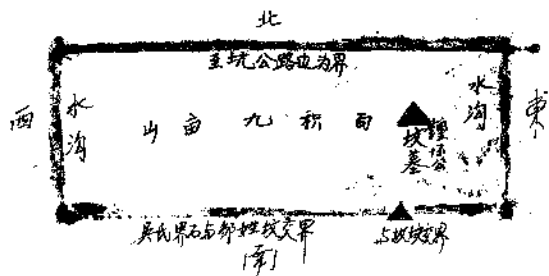 北
至坑公路边为界
西
水沟
山亩九积面
坟墓
水沟
东
吴氏界石与邹姓坟交界
与坟坟交界
南